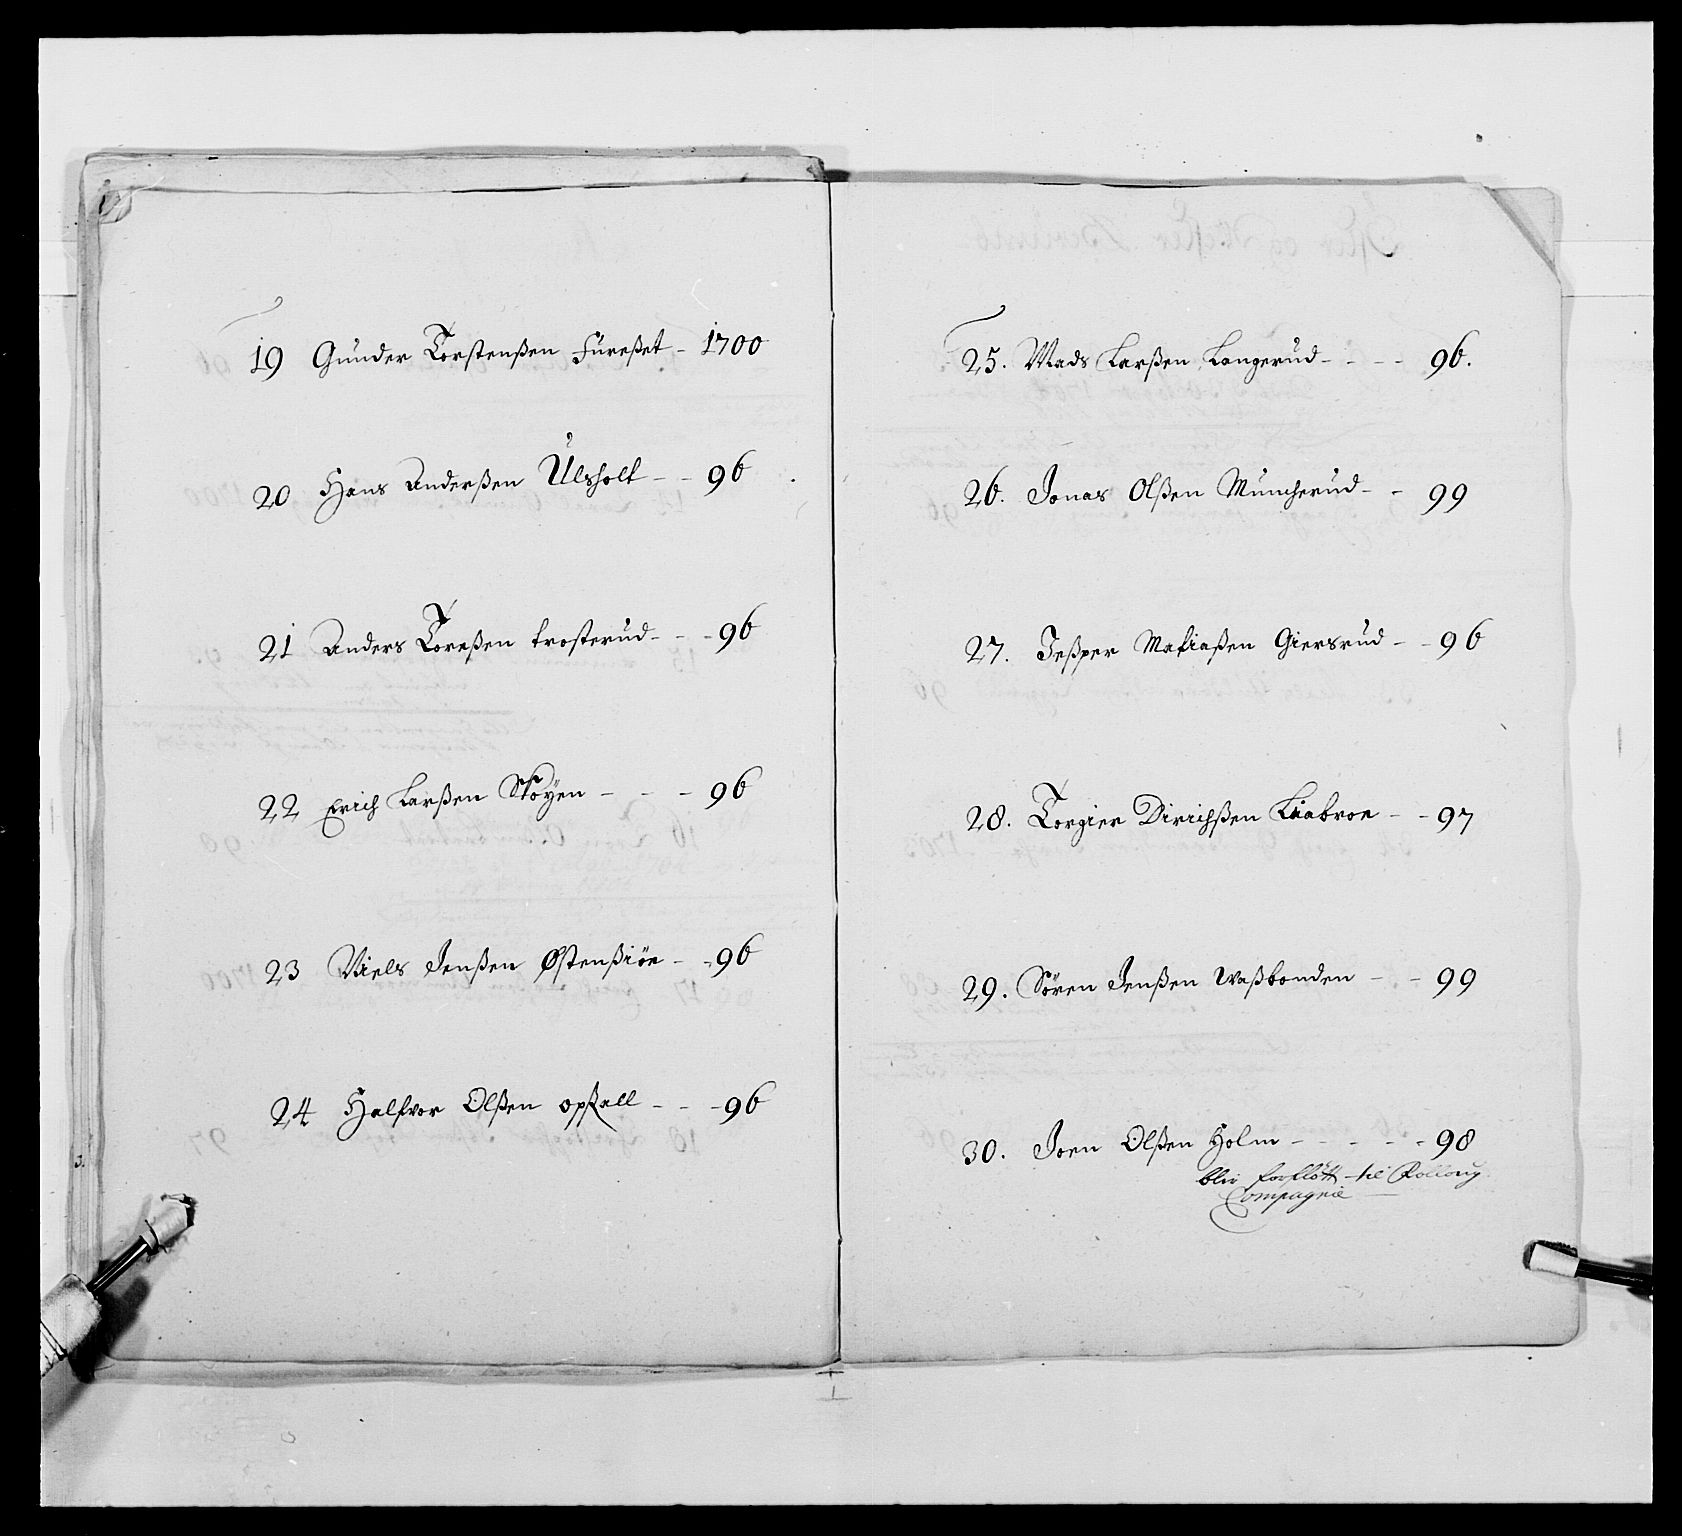 19 Gunder Torstenßen Fúreßet - 1700
20 Hans Anderßen Ulsholt - - 96
21 Anders Toreßen trosterúd - - - 96
22 Erich Larßen Skøÿen - - - 96
23 Niels Jenßen Østenßiöe - - 96
24 Halfvor Olßen opsall - - - 96
25. Mads Larßen Langerúd - - - - 96.
26. Jonas Olßen Múncherúd - - 99
27. Jeßper Matiaßen Giersrúd - - 96
28. Torgier Dirichßen Liabroe - - 97
29. Søren Jenßen Waßbonden - - 99
30. Joen Olßen Holm - - - - - 98
blev forflött til
Compagnie